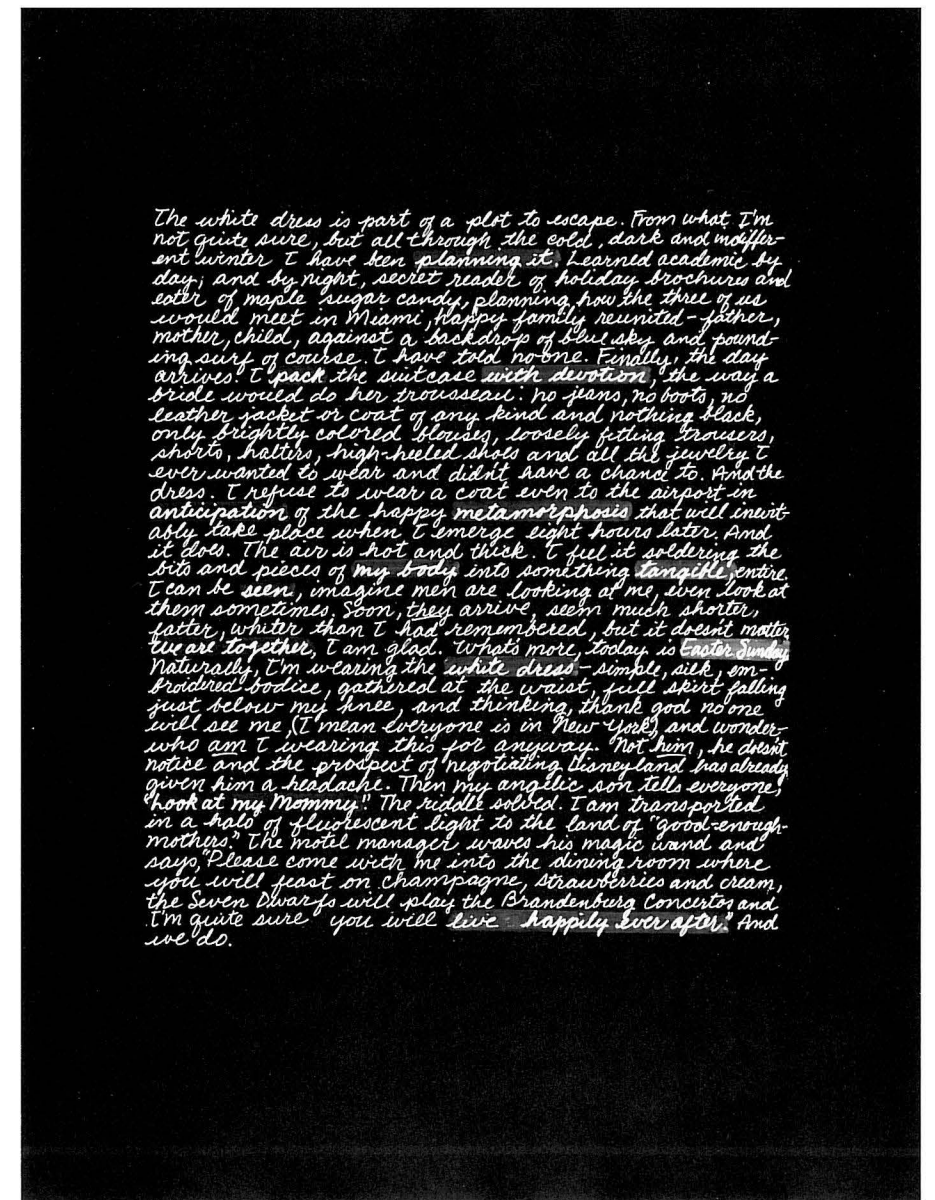 The white dress is part of a plot to escape. From what I'm
not quite sure, but all through the cold, dark and indiffer-
ent winter I have ben planning it. Learned academic by
day; and by night, secret reader of holiday brochures and
eater of maple sugar candy, planning how the three of us
would meet in Miami, happy family reunited - father,
mother, child, against a backdrop of blue sky and pound-
ing surf of course. I have told no one. Finally, the day
arrives. I pack the suitcase with devotion, the way a
bride would do her trousseau: no jeans, no boots, no
leather jacket or coat of any kind and nothing black,
only brightly colored blouses, loosely fitting trousers,
shorts, halters, high-heeled shoes and all the jewelry I
ever wanted to wear and didn't have a chance to. And the
dress. I refuse to wear a coat even to the airport in
anticipation of the happy metamorphosis that will inevit-
ably take place when I emerge eight hours later. And
it does. The air is hot and thick. I feel it soldering the
bits and pieces of my body into something tangible, entire.
I can be seen, imagine men are looking at me, even look at
them sometimes. Soon, they arrive, seem much shorter,
fatter, whiter than I had remembered, but it doesn't matter.
We are together, I am glad. What's more, today is Easter Sunday.
Naturally, I'm wearing the white dress - simple, silk, em-
broidered bodice, gathered at the waist, full skirt falling
just below my knee, and thinking, thank god no one
will see me, (I mean everyone is in New York) and wonder-
who am I wearing this for anyway. Not him, he doesn't
notice and the prospect of negotiating Disneyland has already
given him a headache. Then my angelic son tells everyone,
"Look at my Mommy!" The riddle solved. I am transported
in a halo of fluorescent light to the land of "good-enough-
mothers." The motel manager waves his magic wand and
says, "Please come with me into the dining room where
you will feast on champagne, strawberries and cream,
the Seven Dwarfs will play the Brandenburg Concertos and
I'm quite sure you will live happily ever after." And
we do.